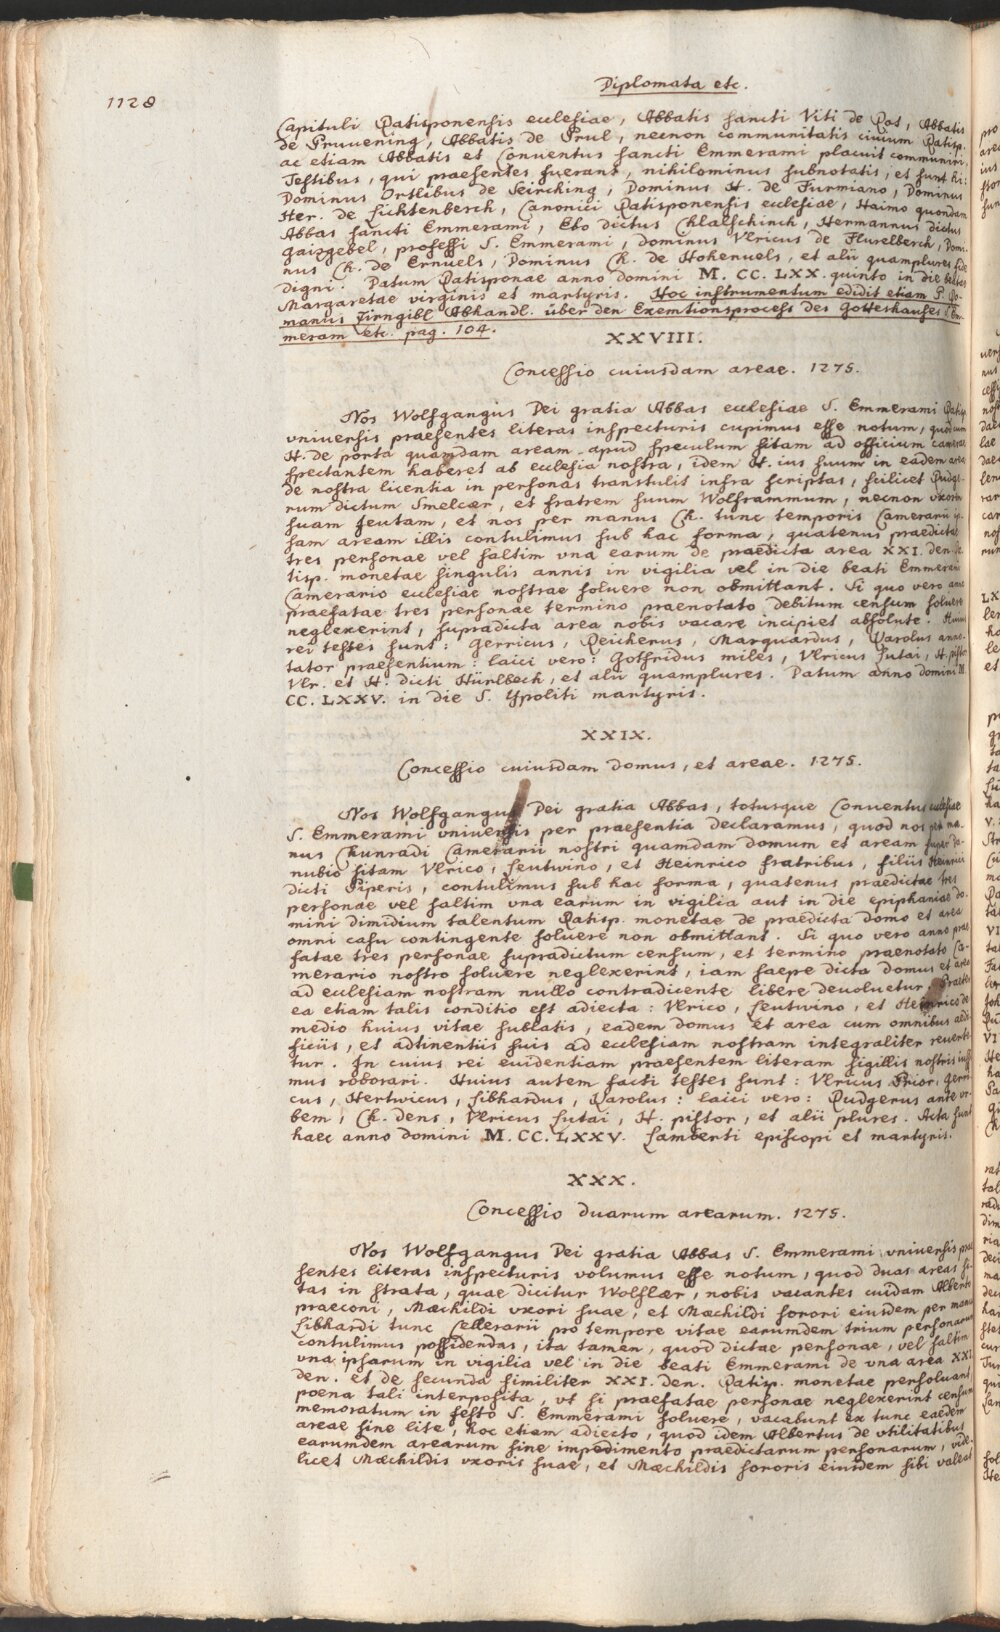 Diplomata etc.
1128
Capituli Ratisponensis ecclesiae, Abbatis sancti Viti de Rot, Abbatis
de Pruuening, Abbatis de Prul, necnon communitatis ciuium Ratisp.
ac etiam Abbatis et Conuentus sancti Emmerami placuit communiri.
Testibus, qui praesentes fuerant, nihilominus subnotatis, et sunt hi:
Dominus Ortlibus de Seirching, Dominus H. de Furmiano, Dominus
Her. de Lichtenberch, Canonici Ratisponensis ecclesiae, Haimo quondam
Abbas sancti Emmerami, Ebo dictus Chlalschinch, Hermannus dictus
Gaizgebel, professi S. Emmerami, dominus Vlricus de Flurelberch, Domi-
nus Ch. de Ernuels, Dominus Ch. de Hohenuels, et alii quamplures fide
digni. Datum Ratisponae anno domini M. CC. LXX. quinto in die beatae
Margaretae virginis et martyris. Hoc instrumentum edidit etiam P. Ro-
manus Zirngibl Abhandl. über den Exemtionsprocess des Gotteshauses S. Em-
meram etc. pag. 104.
XXVIII.
Concessio cuiusdam areae. 1275.
Nos Wolfgangus Dei gratia Abbas ecclesiae S. Emmerami Ratisp.
vniuersis praesentes literas inspecturis cupimus esse notum, quod cum
H. de porta quamdam aream apud speculum sitam ad officium camerae
spectantem haberet ab ecclesia nostra, idem H. ius suum in eadem area
de nostra licentia in personas transtulit infra scriptas, scilicet Rudge-
rum dictum Smelcer, et fratrem suum Wolframmum, necnon vxorem
suam Jeutam, et nos per manus Ch. tunc temporis Camerarii ip-
sam aream illis contulimus sub hac forma, quatenus praedictae
tres personae vel saltim vna earum de praedicta area XXI. den. Ra-
tisp. monetae singulis annis in vigilia vel in die beati Emmerami
Camerario ecclesiae nostrae soluere non obmittant. Si quo vero anno
praefatae tres personae termino praenotato debitum censum soluere
neglexerint, supradicta area nobis vacare incipiet absolute. Huius
rei testes sunt: Gerricus, Reicherus, Marquardus, Karolus anno-
tator praesentium: laici vero: Gotfridus miles, Vlricus Sutai, H. pistor
Vlr. et H. dicti Hürlbech, et alii quamplures. Datum anno domini M.
CC. LXXV. in die S. Ypoliti martyris.
XXIX.
Concessio cuiusdam domus, et areae. 1275.
Nos Wolfgangus Dei gratia Abbas, totusque Conuentus ecclesiae
S. Emmerami vniuersis per praesentia declaramus, quod nos per ma-
nus Chunradi Camerarii nostri quamdam domum et aream super Da-
nubio sitam Vlrico, Leutwino, et Heinrico fratribus, filiis Heinrici
dicti Piperis, contulimus sub hac forma, quatenus praedictae tres
personae vel saltim vna earum in vigilia aut in die epiphaniae do-
mini dimidium talentum Ratisp. monetae de praedicta domo et area
omni casu contingente soluere non obmittant. Si quo vero anno prae-
fatae tres personae supradictum censum, et termino praenotato Ca-
merario nostro soluere neglexerint, iam saepe dicta domus et area
ad ecclesiam nostram nullo contradicente libere deuoluetur. Praeter
ea etiam talis conditio est adiecta: Vlrico, Leutwino, et Heinrico de
medio huius vitae sublatis, eadem domus et area cum omnibus aedi-
ficiis, et adtinentiis suis ad ecclesiam nostram integraliter reuerte-
tur. In cuius rei euidentiam praesentem literam sigillis nostris ius-
mus roborari. Huius autem facti testes sunt: Vlricus Prior, Gerri-
cus, Hertwicus, Libhardus, Karolus: laici vero: Rudgerus ante vr-
bem, Ch. dens, Vlricus Sutai, H. pistor, et alii plures. Acta sunt
haec anno domini M. CC. LXXV. Lamberti episcopi et martyris.
XXX.
Concessio duarum arearum. 1275.
Nos Wolfgangus Dei gratia Abbas S. Emmerami vniuersis prae-
sentes literas inspecturis volumus esse notum, quod duas areas si-
tas in strata, quae dicitur Wolflaer, nobis vacantes cuidam Alberto
praeconi, Maechildi vxori suae, et Maechildi sorori eiusdem per manus
Libhardi tunc Cellerarii pro tempore vitae earumdem trium personarum
contulimus possidendas, ita tamen, quod dictae personae, vel saltim
vna ipsarum in vigilia vel in die beati Emmerami de vna area XXI.
den. et de secunda similiter XXI. den. Ratisp. monetae persoluant
poena tali interposita, vt si praefatae personae neglexerint censum
memoratum in festo S. Emmerami soluere, vacabunt ex tunc eaedem
areae sine lite, hoc etiam adiecto, quod idem Albertus de vtilitatibus
earumdem arearum sine impedimento praedictarum personarum, vide-
licet Maechildis vxoris suae, et Maechildis sororis eiusdem sibi valeat